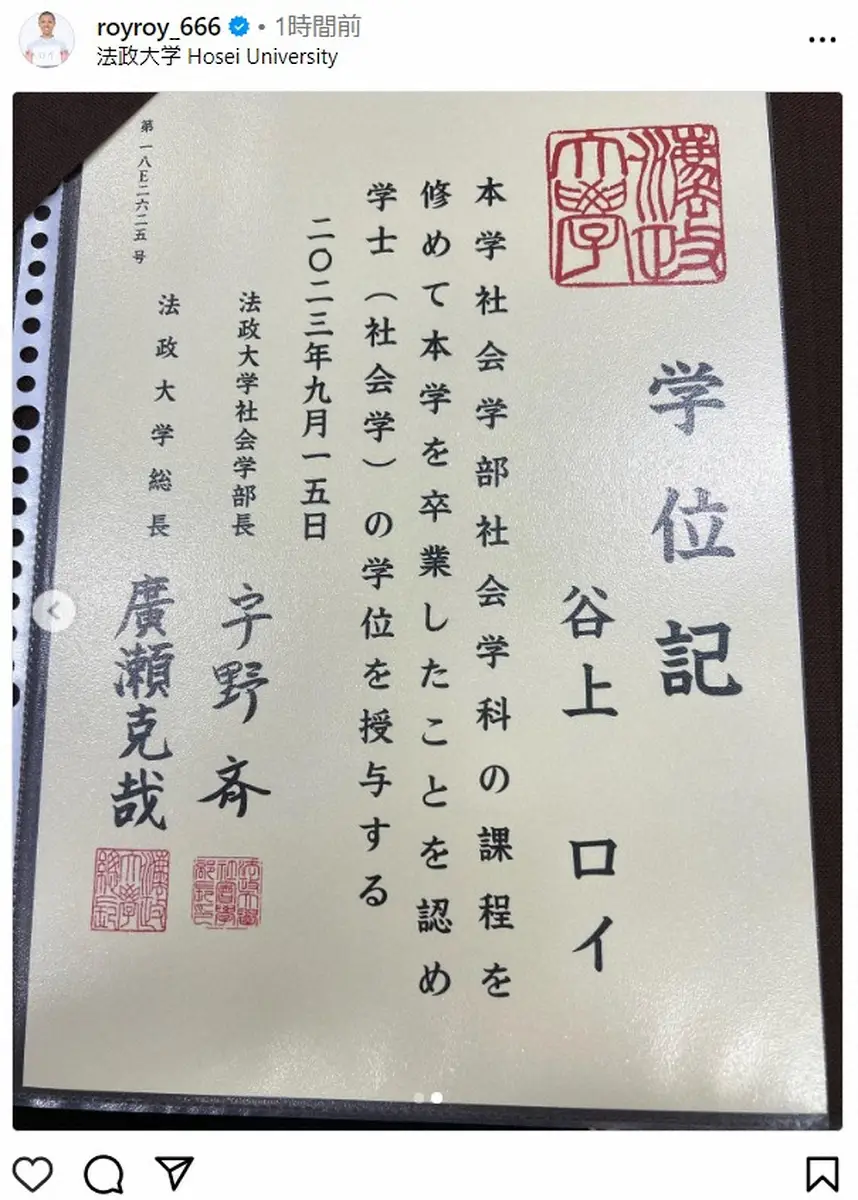 royroy_666 • 1時間前
法政大学 Hosei University
学位記
谷上 ロイ
本学社会学部社会学科の課程を
修めて本学を卒業したことを認め
学士（社会学）の学位を授与する
二〇二三年九月一五日
法政大学社会学部長 宇野 斉
法政大学総長 廣瀬克哉
第一八E二六二五号